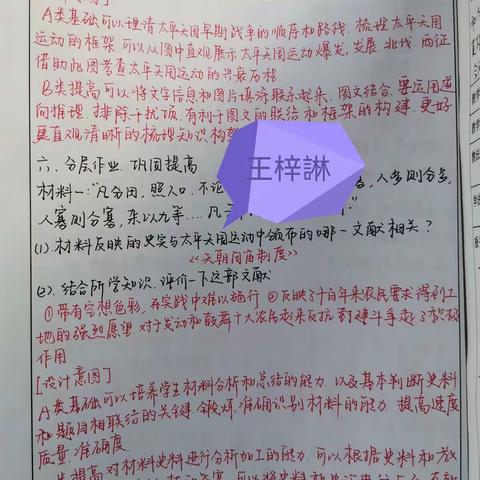 A类基础可以理清太平天国早期战争的顺序和路线.梳理太平天国
运动的框架.可以从图中直观展示太平天国运动爆发,发展.北伐.西征
借助此图考查太平天国运动的兴衰历程.
B类提高可以将文字信息和图片填涂联系起来.图文结合.要运用逆
向推理.排除干扰项.有利于图文的联结和框架的构建.更好
更直观清晰的梳理知识构架
六、分层作业.巩固提高
王梓謝
材料一:"凡分田,照人口,不论 人多则分多,
人寡则分寡,杂以九等....凡
(1).材料反映的史实与太平天国运动中颁布的哪一文献相关?
《天朝田亩制度》
(2).结合所学知识.评价一下这部文献
①带有空想色彩,在实践中难以施行 ②反映了千百年来农民要求得到土
地的强烈愿望.对于发动和鼓舞广大农民起来反抗封建斗争起了积极
作用
[设计意图]
A类基础可以培养学生材料分析和总结的能力.以及基本判断史料
和题目相联结的关键.锻炼.准确识别材料的能力.提高速度
质量.准确度.
提高对材料史料进行分析加工的能力.可以根据史料和教